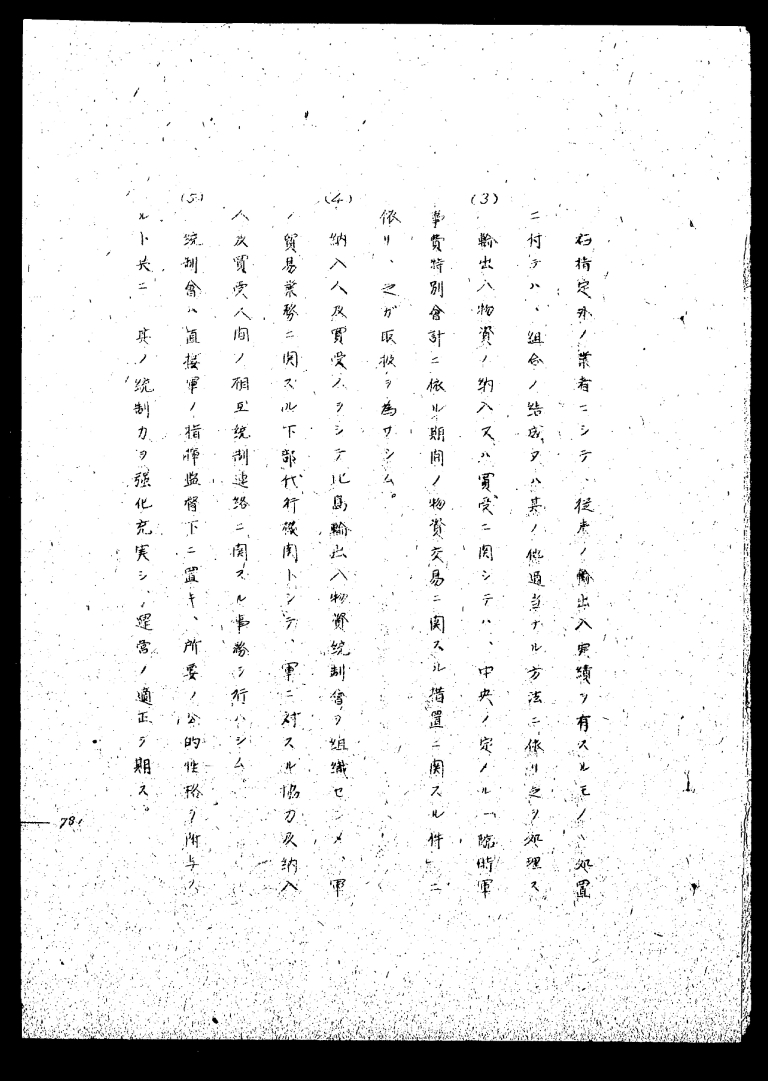 右指定外ノ業者ニシテ、従来ノ輸出入実績ヲ有スルモノノ処置
ニ付テハ、組合ノ結成又ハ其ノ他適当ナル方法ニ依リ之ヲ処理ス
(3) 輸出入物資ノ納入又ハ買受ニ関シテハ、中央ノ定メル「臨時軍
事費特別會計ニ依ル期間ノ物資交易ニ関スル措置ニ関スル件」ニ
依リ、之が取扱ヲ為サシム。
(4) 納入人及買受人ヲシテ比島輸出入物資統制會ヲ組織セシメ、軍
ノ貿易業務ニ関スル下部代行機関トシテ、軍ニ対スル協力及納入
人及買受人間ノ相互統制連絡ニ関スル事務ヲ行ハシム
(5) 統制會ハ直接軍ノ指揮監督下ニ置キ、所要ノ公的性格ヲ附与ス
ルト共ニ其ノ統制力ヲ強化充実シ、運営ノ適正ヲ期ス。
78